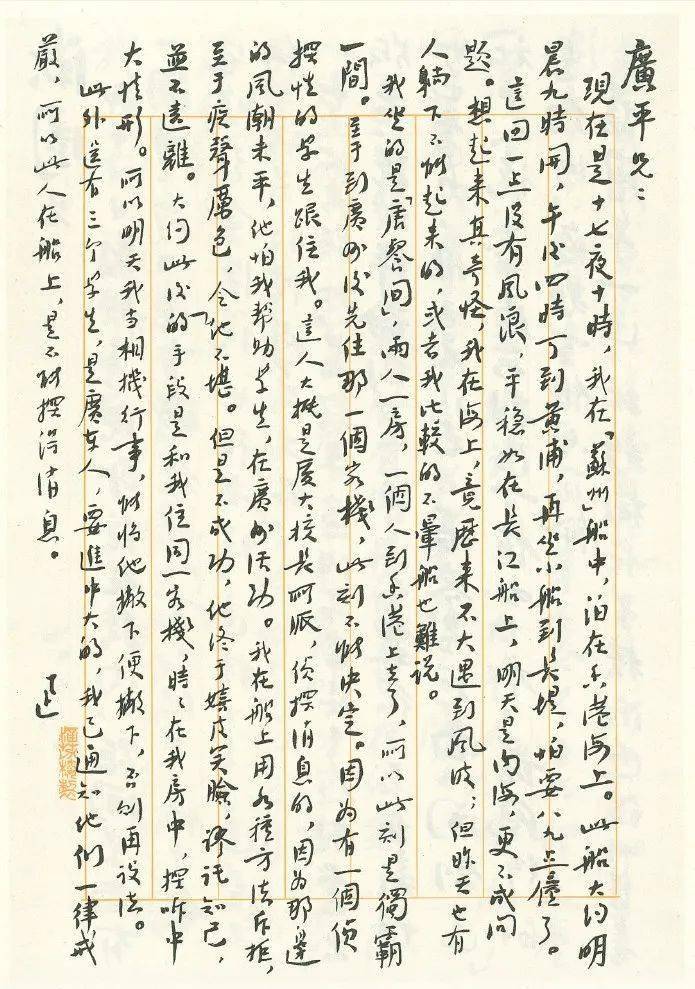 廣平兄：
現在是十七夜十時，我在「蘇州」船中，泊在香港海上。此船大约明
晨九時開，午後四時可到黃浦，再坐小船到長堤，怕要八九點鐘了。
這回一點沒有風浪，平穩如在長江船上，明天是內海，更不成问
題。想起來真奇怪，我在海上，竟歷來不大遇到風波；但昨天也有
人躺下不能起來的，或者我比較的不暈船也難說。
我坐的是「唐餐间」，兩人一房，一個人到香港上去了，所以此刻是獨霸
一間。至于到廣州後先住那一個客棧，此刻不能決定。因为有一個偵
探性的学生跟住我。這人大概是廈大校長所派，偵探消息的，因为那邊
的風潮未平，他怕我帮助学生，在廣州活动。我在船上用各種方法斥拒，
至于疾聲厲色，令他不堪。但是不成功，他終于嬉皮笑臉，謬託知己，
並不遠離。大约此後的手段是和我住同一客棧，時〻在我房中，探听中
大情形。所以明天我当相機行事，能將他撇下便撇下，否則再設法。
此外還有三个学生，是廣东人，要進中大的，我已通知他們一律戒
嚴，所以此人在船上，是不能探得消息。
迅